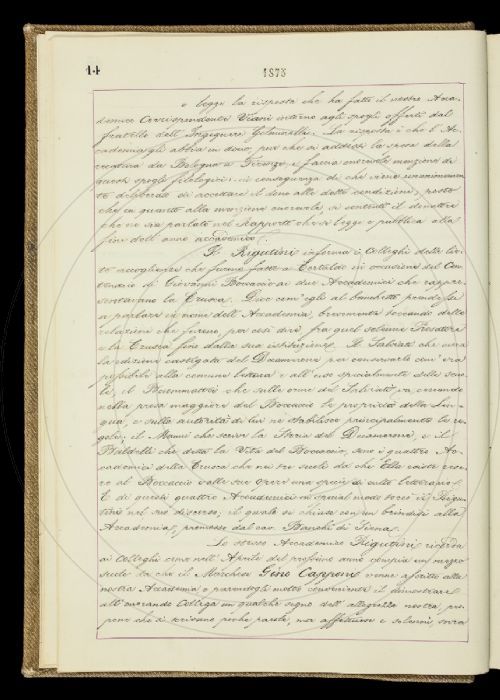 14
1875
e legge la risposta che ha fatto il nostro Acca-
demico Corrispondente Viani intorno agli spogli offerti dal
fratello dell'Ingegnere . La risposta è che l'Ac-
cademia gli abbia in dono, pur che si addossi la spesa della
da Bologna a Firenze, e faccia onorevole menzione di
questi spogli filologici: in conseguenza di che viene unanimamen-
te deliberato di accettare il dono alle dette condizioni, posto
che in quanto alla menzione onorevole si contenti il donatore
che ne sia parlato nel Rapporto che si legge e pubblica alla
fine dell'anno accademico.
Il Rigutini informa i Colleghi della lie-
ta accoglienza che fecero fatta a Certaldo in occasione del Cen-
tenario di Giovanni Boccaccio ai due Accademici che rappre-
sentavano la Crusca. Dice com'egli al banchetto prendesse
a parlare in nome dell'Accademia, brevemente toccando delle
relazioni che furono, per così dire, fra quel solenne Prosatore
e la Crusca fino dalla sua istituzione. Il Salviati che curò
la edizione castigata del Decamerone per conservarlo com'era
possibile alla comune lettura e all'uso specialmente delle scuo-
le, il Buommattei che sulle orme del Salviati, esamina
nella prosa maggiore del Boccaccio le proprietà della Lin-
gua, e sulla autorità di lui ne stabilisce principalmente le re-
gole; il Manni che scrive la Storia del Decamerone, e il
Baldelli che detta la Vita del Boccaccio, sono i quattro Ac-
cademici della Crusca che nei tre secoli da che Ella esiste eres-
sero al Boccaccio sulle sue opere una specie di culto letterario.
E di questi quattro Accademici in special modo toccò il Rigu-
tini nel suo discorso; il quale si chiuse con un brindisi alla
Accademia, promosso dal cav. Bianchi di Siena.
Lo stesso Accademico Rigutini ricorda
ai Colleghi come nell'Aprile del prossimo anno compia un mezzo
secolo da che il Marchese Gino Capponi venne ascritto alla
nostra Accademia e parendogli molto conveniente il dimostrare
all'onorando Collega un qualche segno dell'allegrezza nostra, pro-
pone che si scrivano poche parole, ma affettuose e solenni, sovra